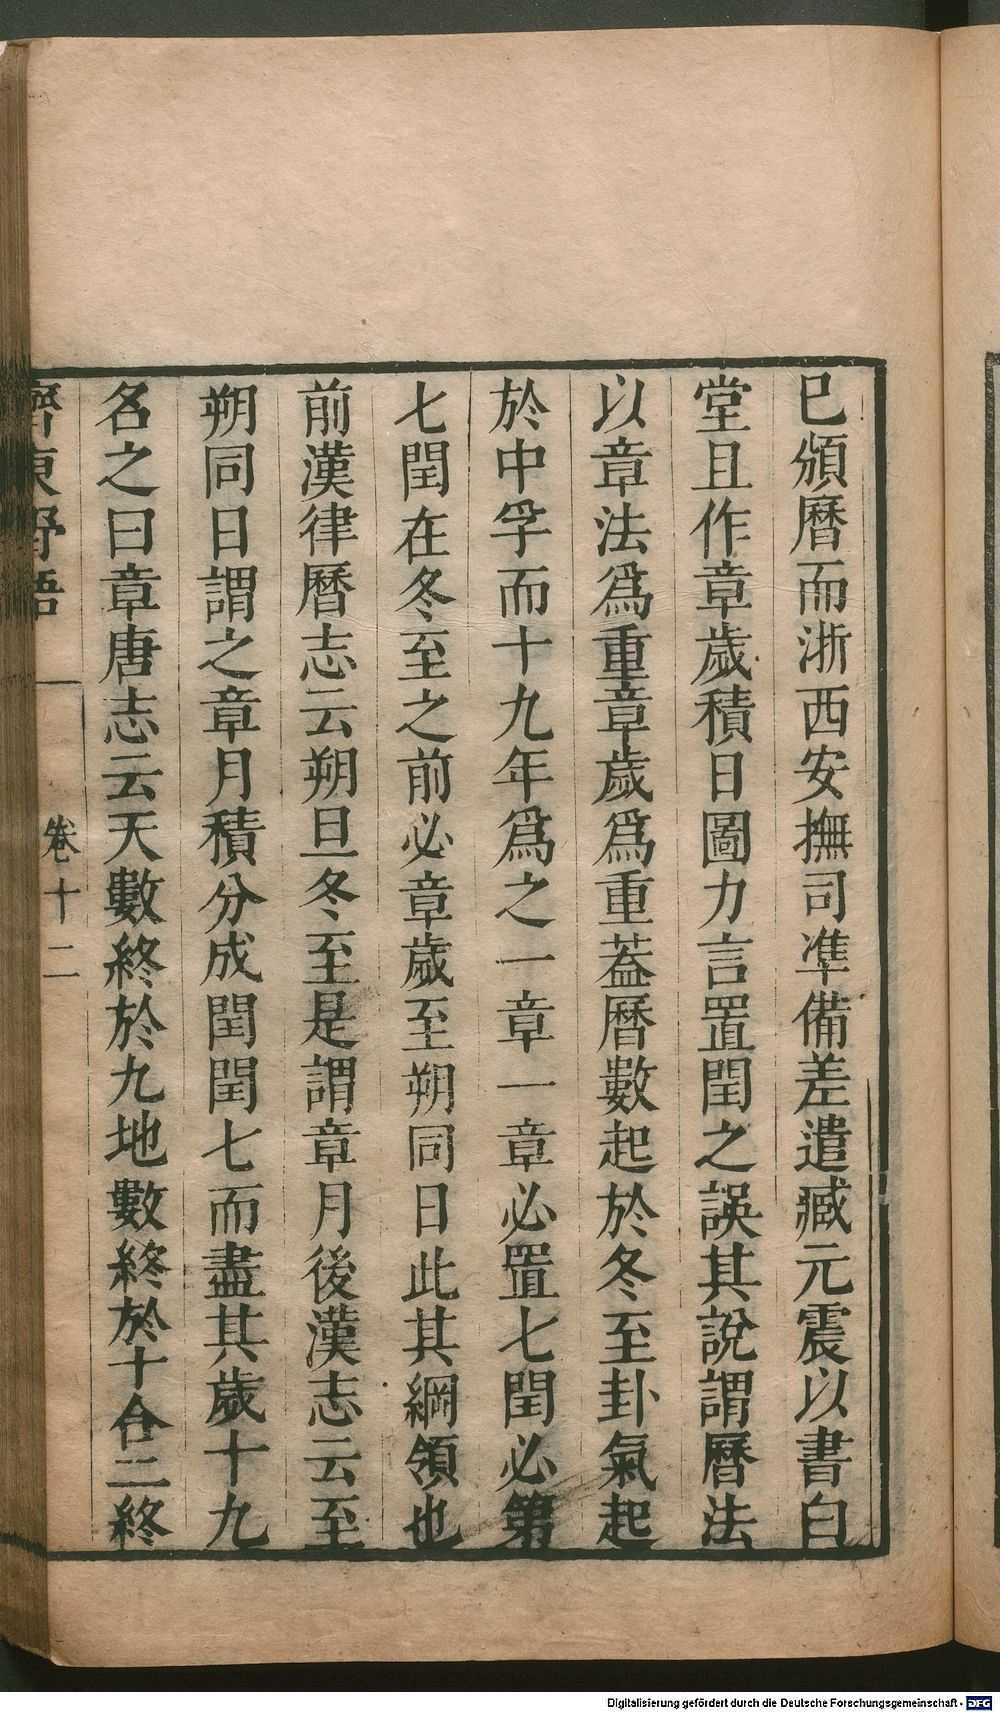 已頒曆而浙西安撫司凖備差遣臧元震以書白
堂且作章歲積日圖力言置閏之誤其說謂曆法
以章法爲重章歲爲重葢曆數起於冬至卦氣起
於中孚而十九年爲之一章一章必置七閏必第
七閏在冬至之前必章歲至朔同日此其綱領也
前漢律曆志云朔旦冬至是謂章月後漢志云至
朔同日謂之章月積分成閏閏七而盡其歲十九
名之曰章唐志云天數終於九地數終於十合二終
齊東野語
卷十二
Digitalisierung gefördert durch die Deutsche Forschungsgemeinschaft - DFG